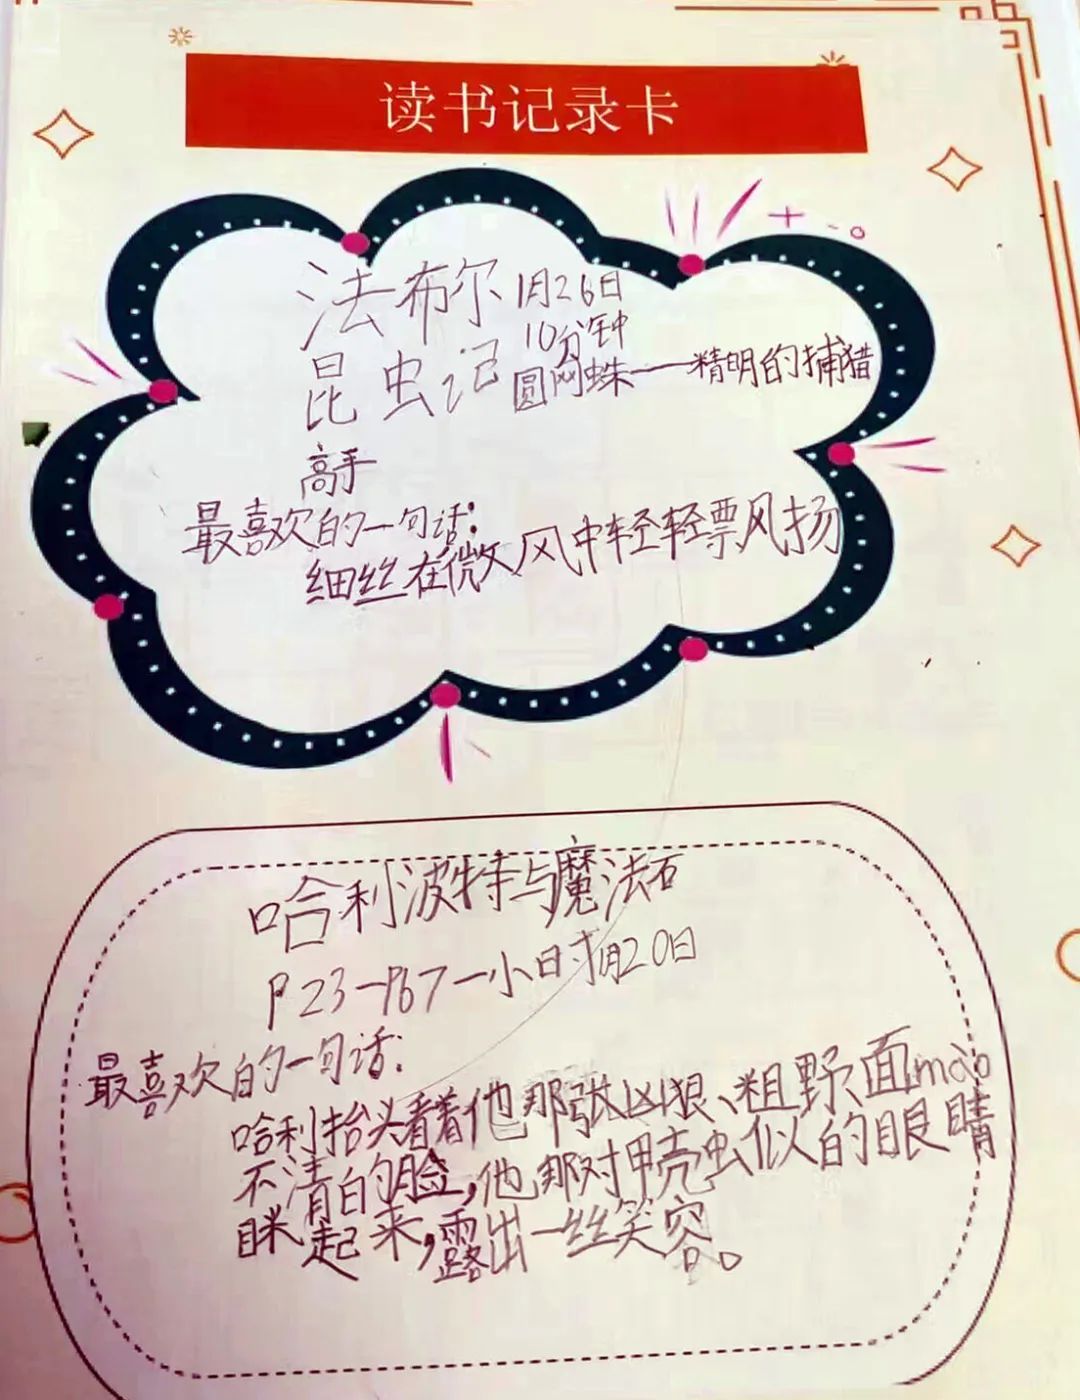 读书记录卡
法布尔 1月26日
10分钟
昆虫记 圆网蛛——精明的捕猎
高手
最喜欢的一句话:
细丝在微风中轻轻票风扬
哈利波特与魔法石
P23-P67一小时1月20日
最喜欢的一句话:
哈利抬头看着他那张凶狠、粗野面mào
不清白的脸,他那对甲壳虫似的眼睛
眯起来,露出一丝笑容。